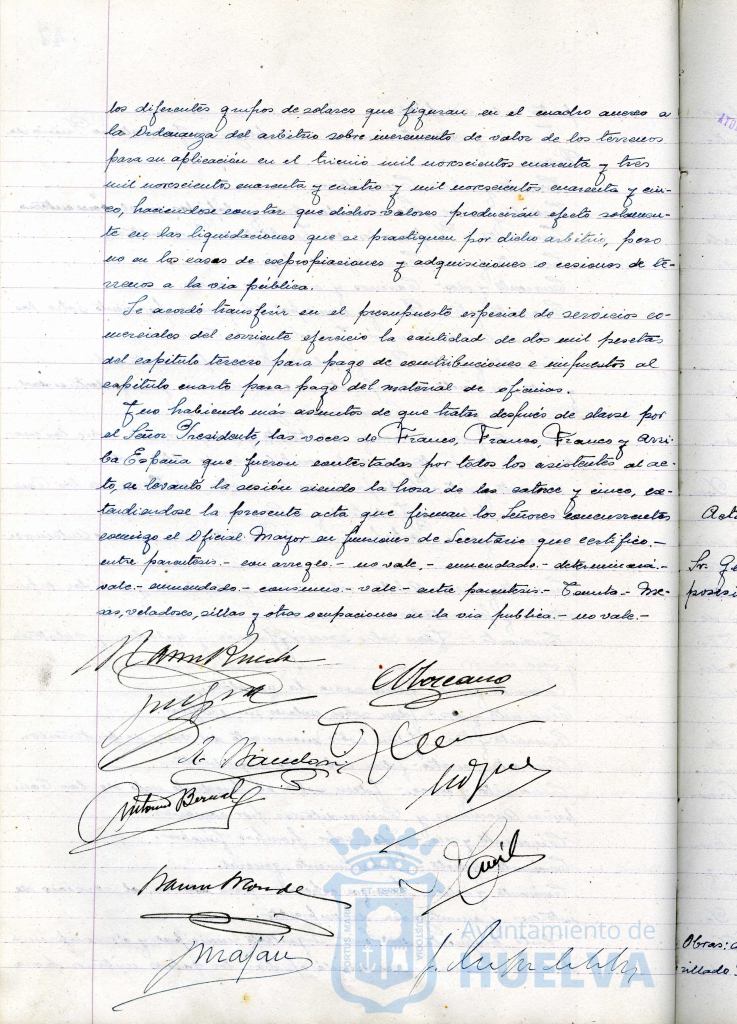 los diferentes grupos de solares que figuran en el cuadro anexo a
la Ordenanza del arbitrio sobre incremento de valor de los terrenos
para su aplicación en el trienio mil novescientos cuarenta y tres
mil novescientos cuarenta y cuatro y mil novescientos cuarenta y cin-
co, haciendose constar que dichos valores producirán efecto solamen-
te en las liquidaciones que se practiquen por dicho arbitrio, pero
no en los casos de expropiaciones y adquisiciones o cesiones de te-
rrenos a la via pública.
Se acordó transferir en el presupuesto especial de servicios co-
merciales del corriente ejercicio la cantidad de dos mil pesetas
del capitulo tercero para pago de contribuciones e impuestos al
capitulo cuarto para pago del material de oficinas.
Y no habiendo más asuntos de que tratar después de darse por
el Señor Presidente, las voces de Franco, Franco, Franco y Arri-
ba España que fueron contestadas por todos los asistentes al ac-
to, se levantó la sesión siendo la hora de las catorce y cinco, ex-
tendiendose la presente acta que firman los Señores concurrentes
conmigo el Oficial Mayor en funciones de Secretario que certifico.-
entre parentesis.- con arreglo.- no vale.- enmendado.- determinará.-
vale.- enmendado.- consumos.- vale.- entre parentesis.- Me-
sas, veladores, sillas y otras ocupaciones en la via publica.- no vale.-
Antonio Bernal
Acta
Sr. Ge
posesi
Obras:
sillado
PORTUS MARIS ET TERRE CUSTODIA
Ayuntamiento de
HUELVA